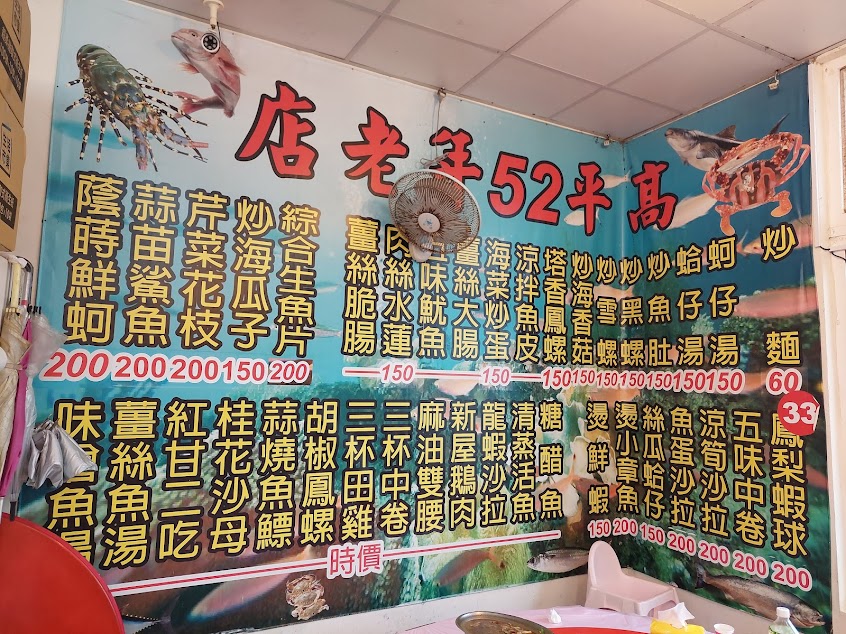 高平52年老店
炒麵
60
蚵仔湯
150
蛤仔湯
150
炒魚肚
150
炒黑螺
150
炒雪螺
150
炒海香菇
150
塔香鳳螺
150
涼拌魚皮
海菜炒蛋
150
薑絲大腸
五味魷魚
肉絲水蓮
150
薑絲脆腸
綜合生魚片
200
炒海瓜子
150
芹菜花枝
200
蒜苗鯊魚
200
蔭蒔鮮蚵
200
33
鳳梨蝦球
200
五味中卷
200
涼筍沙拉
200
魚蛋沙拉
200
絲瓜蛤仔
150
燙小章魚
200
燙鮮蝦
150
糖醋魚
清蒸活魚
龍蝦沙拉
新屋鵝肉
麻油雙腰
三杯中卷
三杯田雞
胡椒鳳螺
蒜燒魚鰾
桂花沙母
紅甘二吃
薑絲魚湯
味噌魚湯
時價